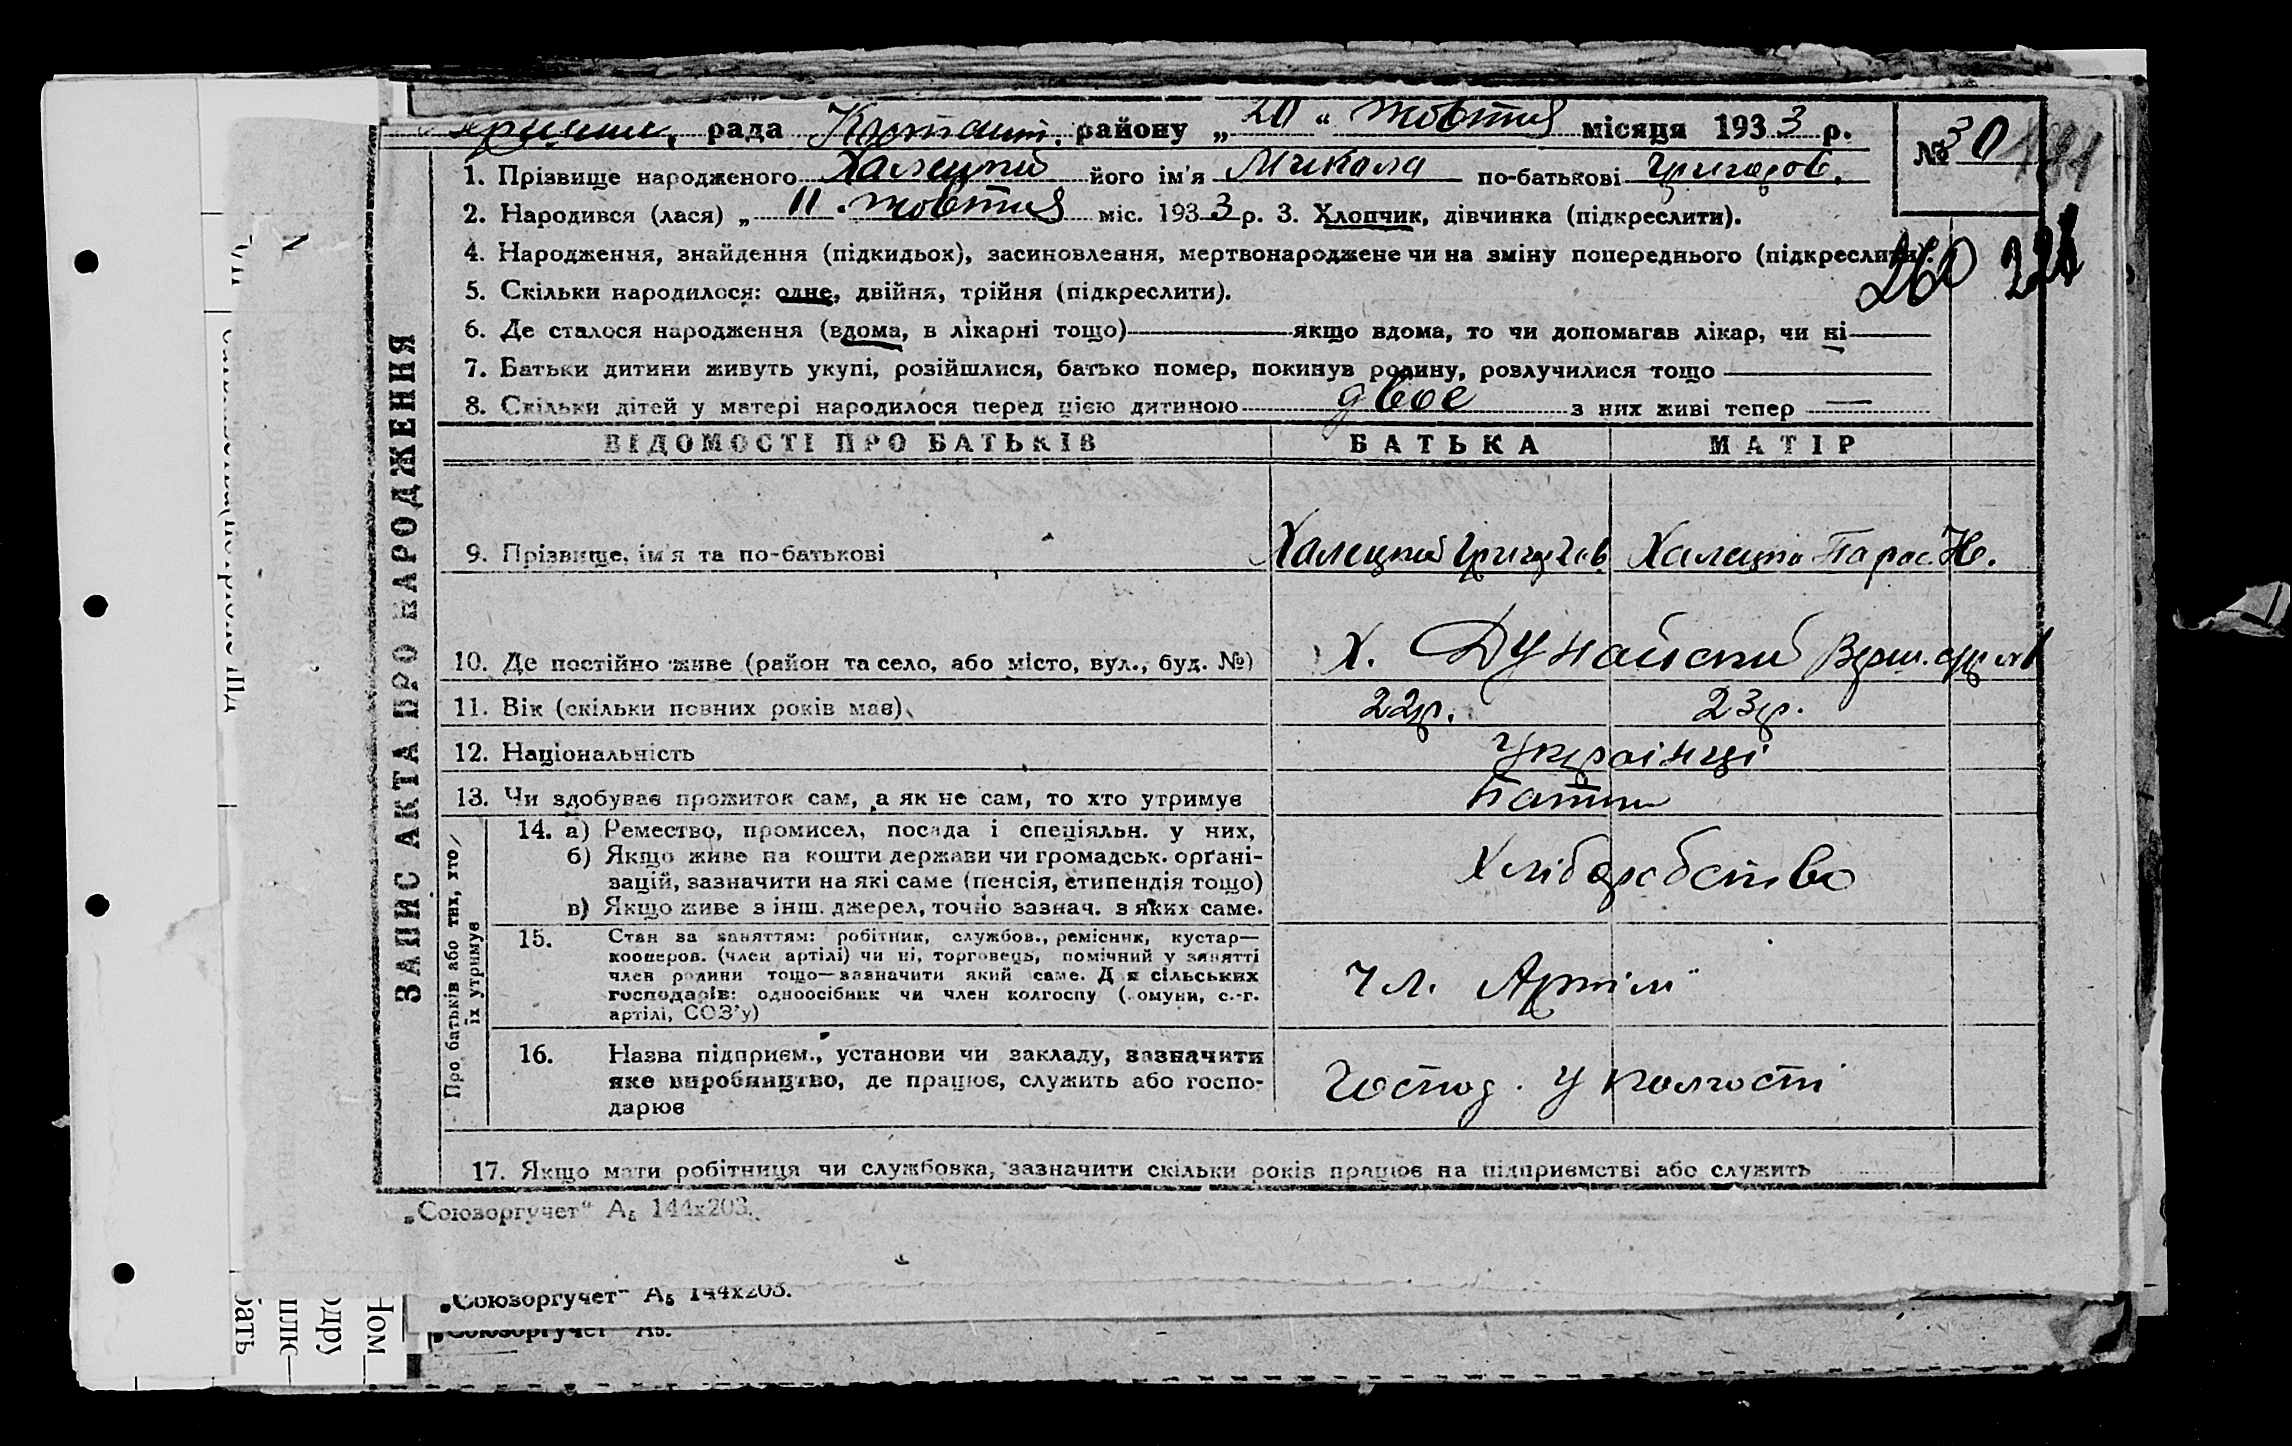 рада районy „20“ жовтня місяця 1933 р.
№ 30
1. Прізвище народженого Халецкий його ім'я Микола по-батькові Григоров.
2. Народився (лася) „ 11 " жовтня міс. 1933 р. 3. Хлопчик, дівчинка (підкреслити).
4. Народження, знайдення (підкидьок), засиновлення, мертвонароджене чи на зміну попереднього (підкреслити).
260 221
5. Скільки народилося: одне, двійня, трійня (підкреслити).
6. Де сталося народження (вдома, в лікарні тощо) якщо вдома, то чи допомагав лікар, чи ні
7. Батьки дитини живуть укупі, розійшлися, батько помер, покинув родину, розлучилися тощо
8. Скільки дітей у матері народилося перед цією дитиною двоє з них живі тепер —
ЗАПИС АКТА ПРО НАРОДЖЕННЯ
ВІДОМОСТІ ПРО БАТЬКІВ БАТЬКА МАТІР
9. Прізвище, ім'я та по-батькові Халецкий Халецка Парас. Н.
10. Де постійно живе (район та село, або місто, вул., буд. №) Х. Дунайский
11. Вік (скільки повних років має) 22 р. 23 р.
12. Національність Українці
13. Чи здобуває прожиток сам, а як не сам, то хто утримує Батьки
Про батьків або тих, хто
їх утримує
14. а) Ремество, промисел, посада і спеціяльн. у них,
б) Якщо живе на кошти держави чи громадськ. орґані-
зацій, зазначити на які саме (пенсія, стипендія тощо)
в) Якщо живе з інш. джерел, точно зазнач. з яких саме.
Хліборобство
15. Стан за заняттям: робітник, службов., ремісник, кустар—
кооперов. (член артілі) чи ні, торговець, помічний у занятті
член родини тощо—зазначити який саме. Для сільських
господарів: одноосібник чи член колгоспу (комуни, с.-г.
артілі, СОЗ'у)
чл. Артілі
16. Назва підприєм., установи чи закладу, зазначити
яке виробництво, де працює, служить або госпо-
дарює
Господ. у колгоспі
17. Якщо мати робітниця чи службовка, зазначити скільки років працює на підприємстві або служить
„Союзоргучет“ А₅ 144х203.
„Союзоргучет“ А₅ 144х203.
„Союзоргучет“ А₅.